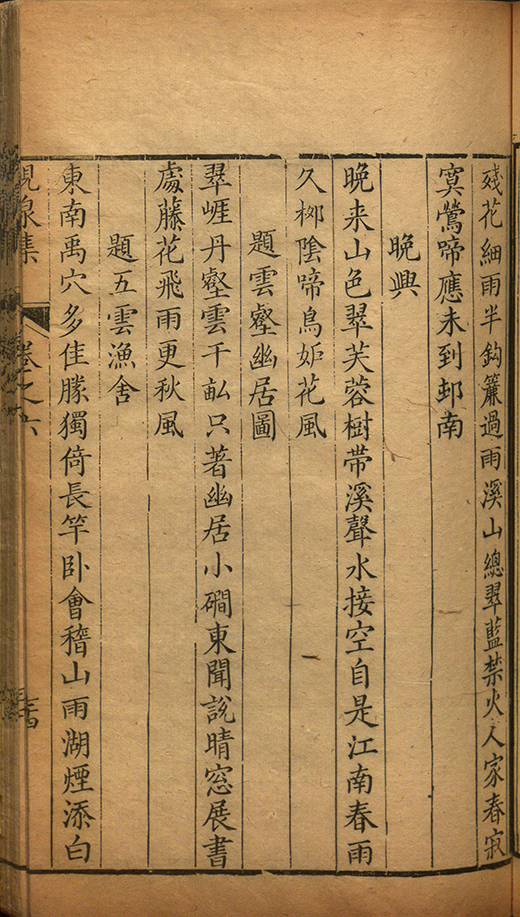 殘花細雨半鈎簾過雨溪山總翠藍禁火人家春寂
寞鶯啼應未到邨南
晚興
晚来山色翠芙蓉樹帶溪聲水接空自是江南春雨
久栁陰啼鳥妒花風
題雲壑幽居圖
翠崕丹壑雲千畆只著幽居小磵東聞說晴窓展書
處藤花飛雨更秋風
題五雲漁舍
東南禹穴多佳勝獨倚長竿卧會稽山雨湖煙添白
泉集 卷之六